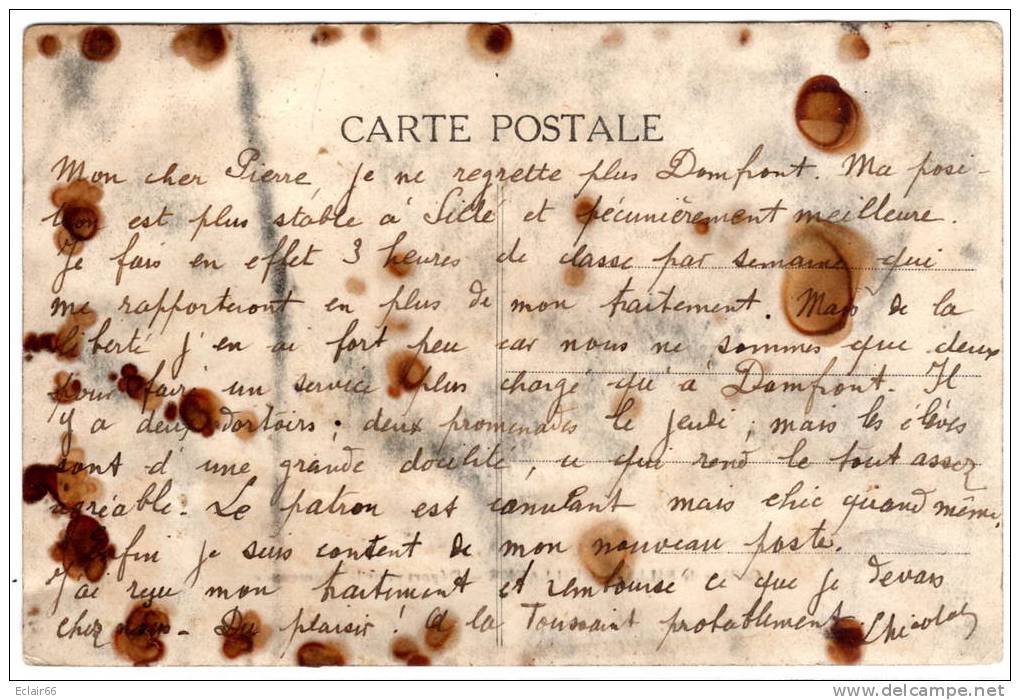 CARTE POSTALE
Mon cher Pierre, je ne regrette plus Domfront. Ma posi-
tion est plus stable à Sillé et pécunièrement meilleure.
Je fais en effet 3 heures de classe par semaine qui
me rapporteront en plus de mon traitement. Mais de la
liberté j'en ai fort peu car nous ne sommes que deux
pour faire un service plus chargé qu'à Domfront. Il
y a deux dortoirs ; deux promenades le jeudi ; mais les élèves
sont d'une grande docilité, ce qui rend le tout assez
agréable. Le patron est canulant mais chic quand même.
Enfin je suis content de mon nouveau poste.
J'ai reçu mon traitement et rembourse ce que je devais
chez vous. Du plaisir ! à la Toussaint probablement.
Eclair66
www.delcampe.net